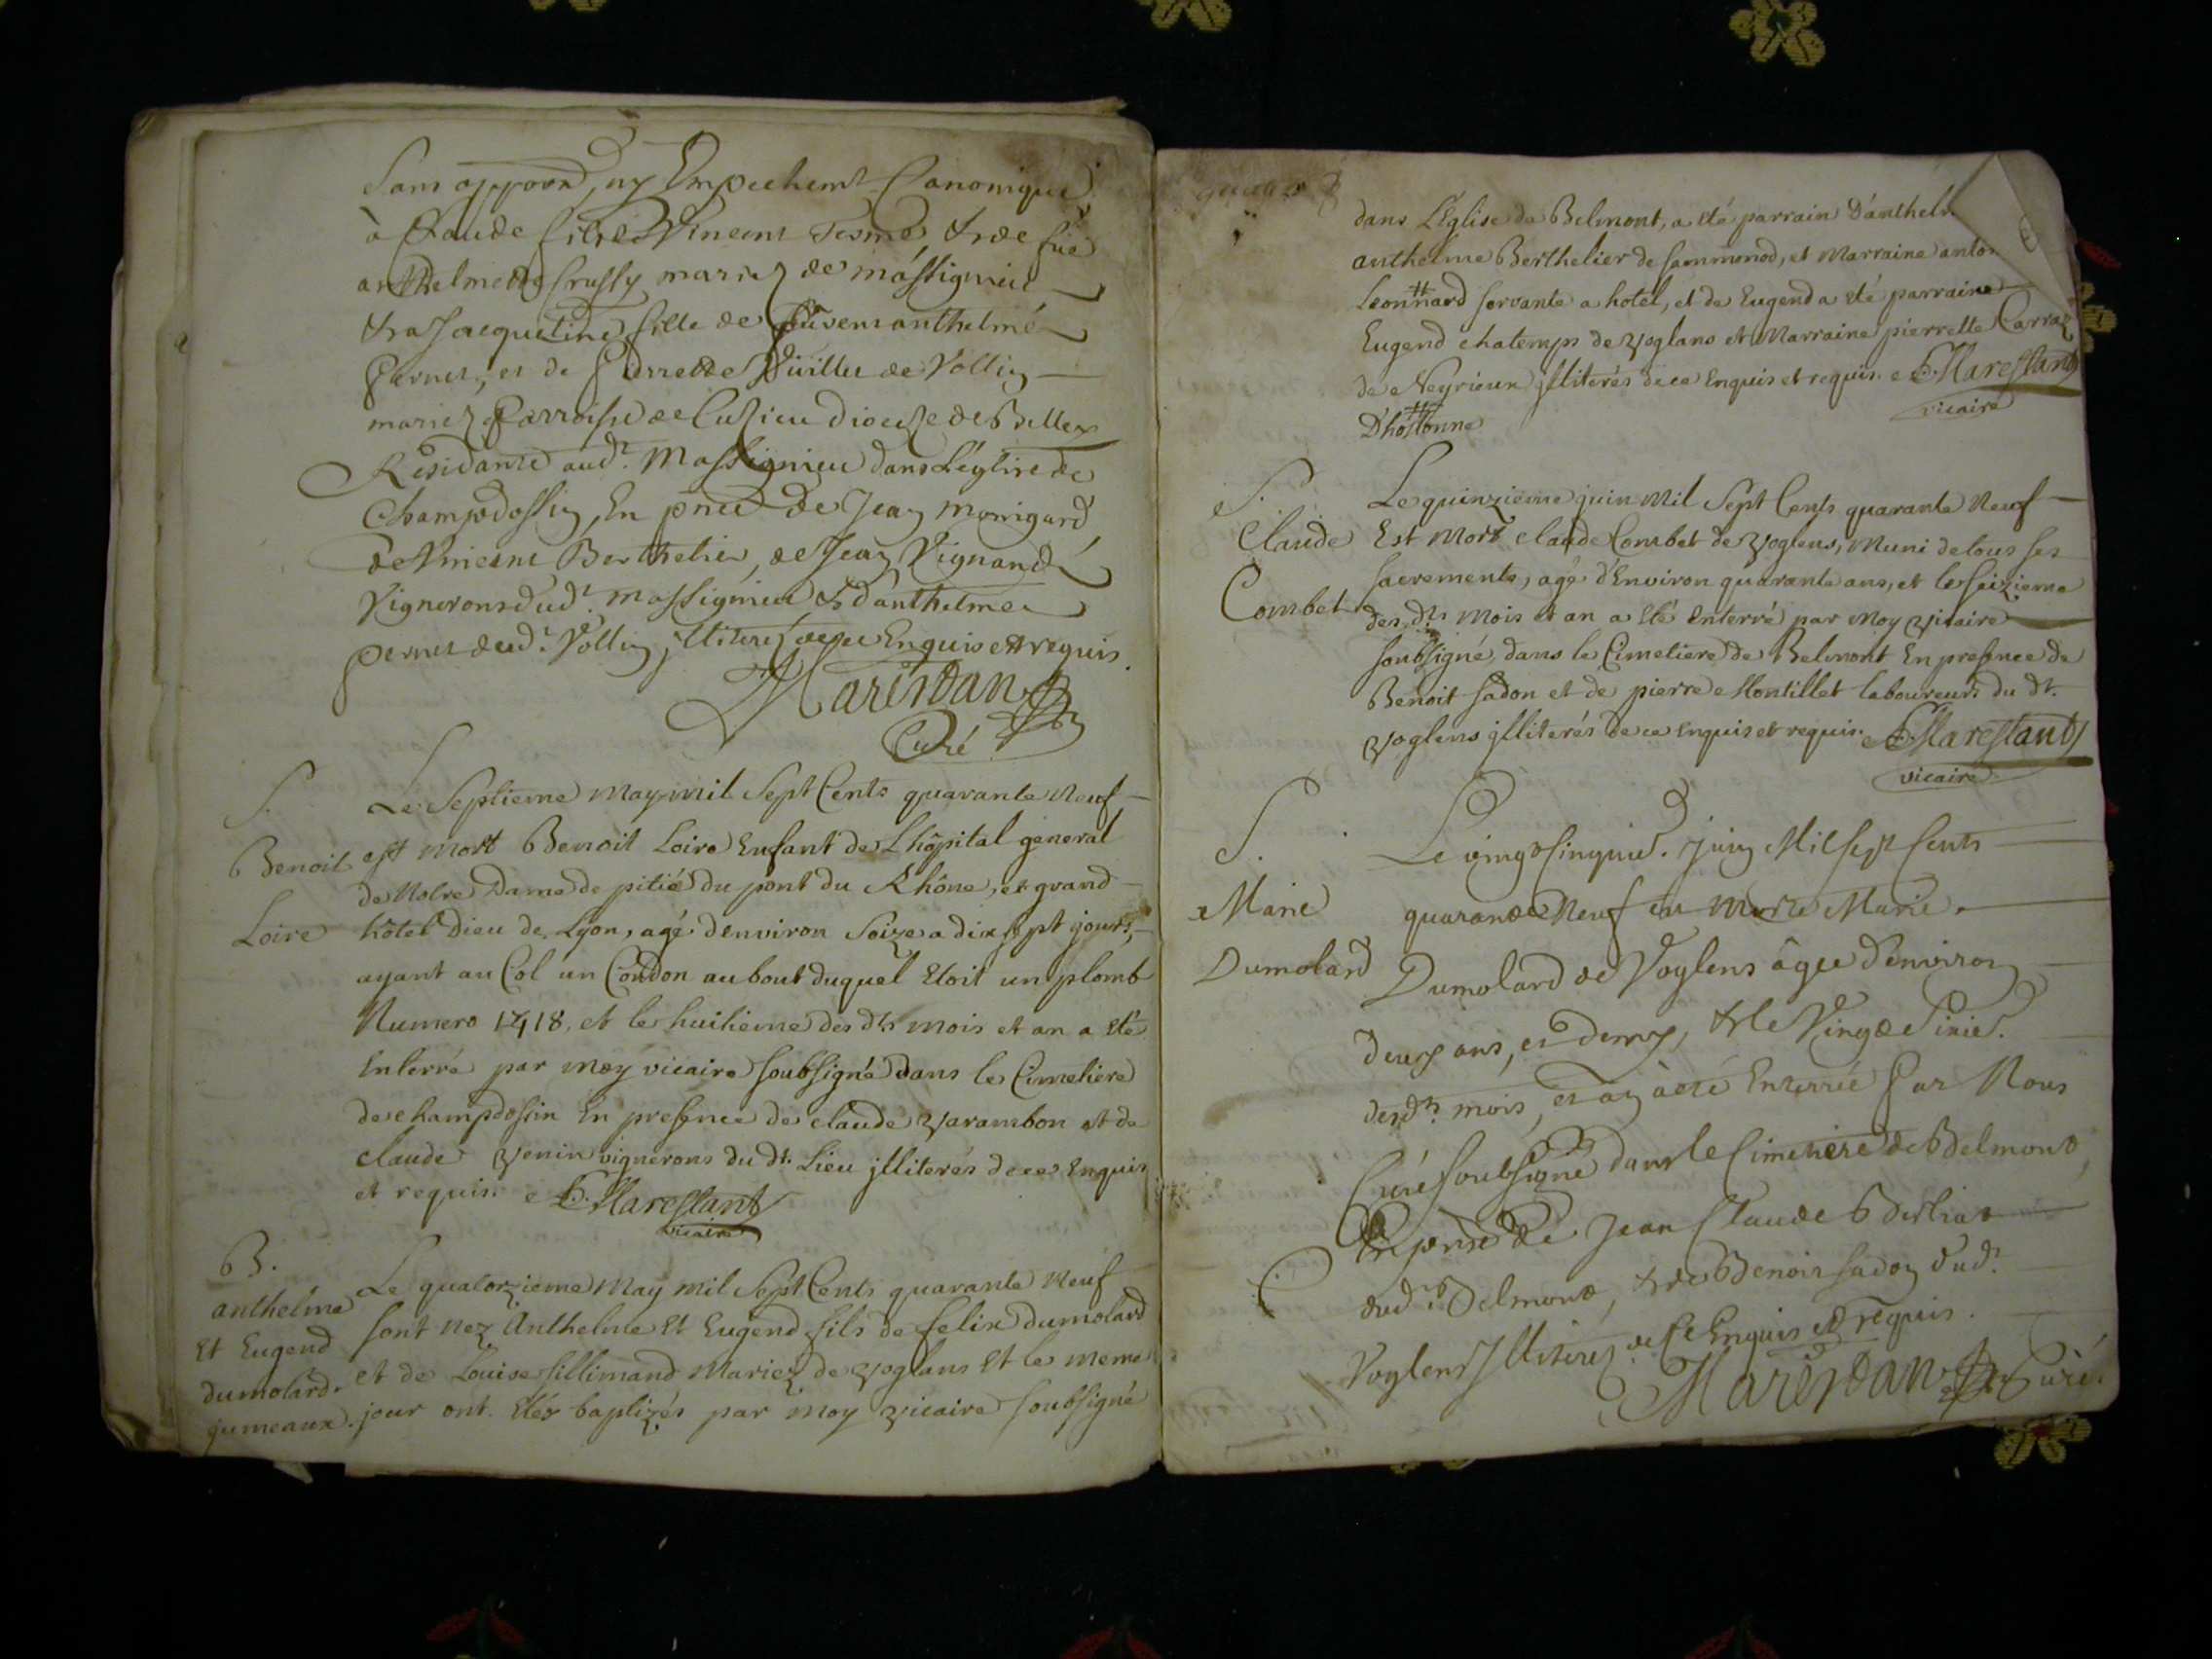 Sans opposõn, ny Empechemt Canonique
à Claude fils de Vincent Tesme, & de fue
anthelmette Crussy mariez de massignieu
& a Jacquetine fille de fuvens anthelme
Pernet, et de Pierrette Vuillet de Vollin
mariez Parroisse de Cuzieu diocese de Belley
Residante aud.t Massignieu dans L'eglise de
Champdossin, En pnce de Jean monigard
de Vincent Berthelier, de Jean Vignand
Vignerons dud.t massignieu & d'anthelme
pernet dud.t Vollin illiterez de ce Enquis et requis.
Marestan
Curé
S.
Benoit
Loire
Le Septieme May mil Sept Cents quarante Neuf
est mort Benoit Loire Enfant de L'hôpital general
de Notre Dame de pitié du pont du Rhône, et grand
hôtel Dieu de Lyon, agé d'environ Seize a dix sept jours,
ayant au Col un Cordon au bout duquel Etoit un plomb
Numero 1418, et le huitieme des dts mois et an a eté
Enterré par moy vicaire soubsigné dans le Cimetiere
de champdossin En presence de claude Varambon et de
claude Venin vignerons du dt. Lieu jlliterés de ce Enquis
et requis. E. Marestant
vicaire
B.
anthelme
Et Eugend
dumolard
jumeaux.
Le quatorzieme May mil Sept Cents quarante Neuf
sont nez Anthelme Et Eugend fils de felix dumolard
et de Louise sillimand Mariez de voglans Et le meme
jour ont. Etés baptizés par moy vicaire soubsigné
dans L'Eglise de Belmont, a eté parrain D'anthel
anthelme Berthelier de sammonod, et Marraine anto
Leonnard servante a hotel, et de Eugend a eté parraine
Eugend chatemps de voglans et Marraine pierrette Carraz
de Veyrieux jlliterés de ce Enquis et requis. E. Marestant
D'hostonne
vicaire
S.
Claude
Combet
Le quinzieme juin Mil Sept Cents quarante Neuf
Est Mort claude Combet de voglens, Muni de tous ses
sacrements, agé d'Environ quarante ans, et le seizieme
des dts Mois et an a eté enterré par Moy vicaire
soubsigné, dans le Cimetiere de Belmont En presence de
Benoit sadon et de pierre Montillet laboureurs du dt.
voglens jlliterés de ce enquis et requis. E. Marestant
vicaire
S.
Marie
Dumolard
Le vingt Cinquie. Juin Mil sept Cents
quarante Neuf est Morte Marie
Dumolard de Voglens âgée d'environ
deux ans, et demy, & le Vingt Sixie.
desdts mois, et an à eté Enterrée Par Nous
Curé soubsigné dans le Cimetiere de Belmont,
En pnce de Jean Claude Berliat
dud.t Belmont, & de Benoit sadon dud.t
Voglens Illiterez de Ce Enquis et requis.
Marestan Curé.